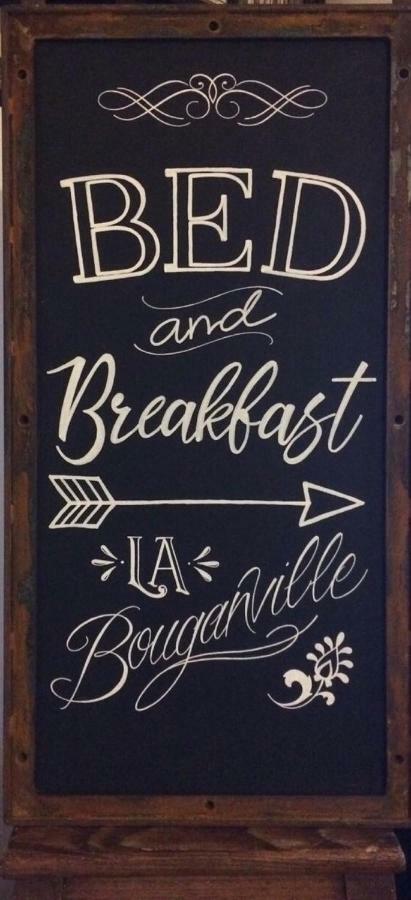 BED
and
Breakfast
LA
Bouganville